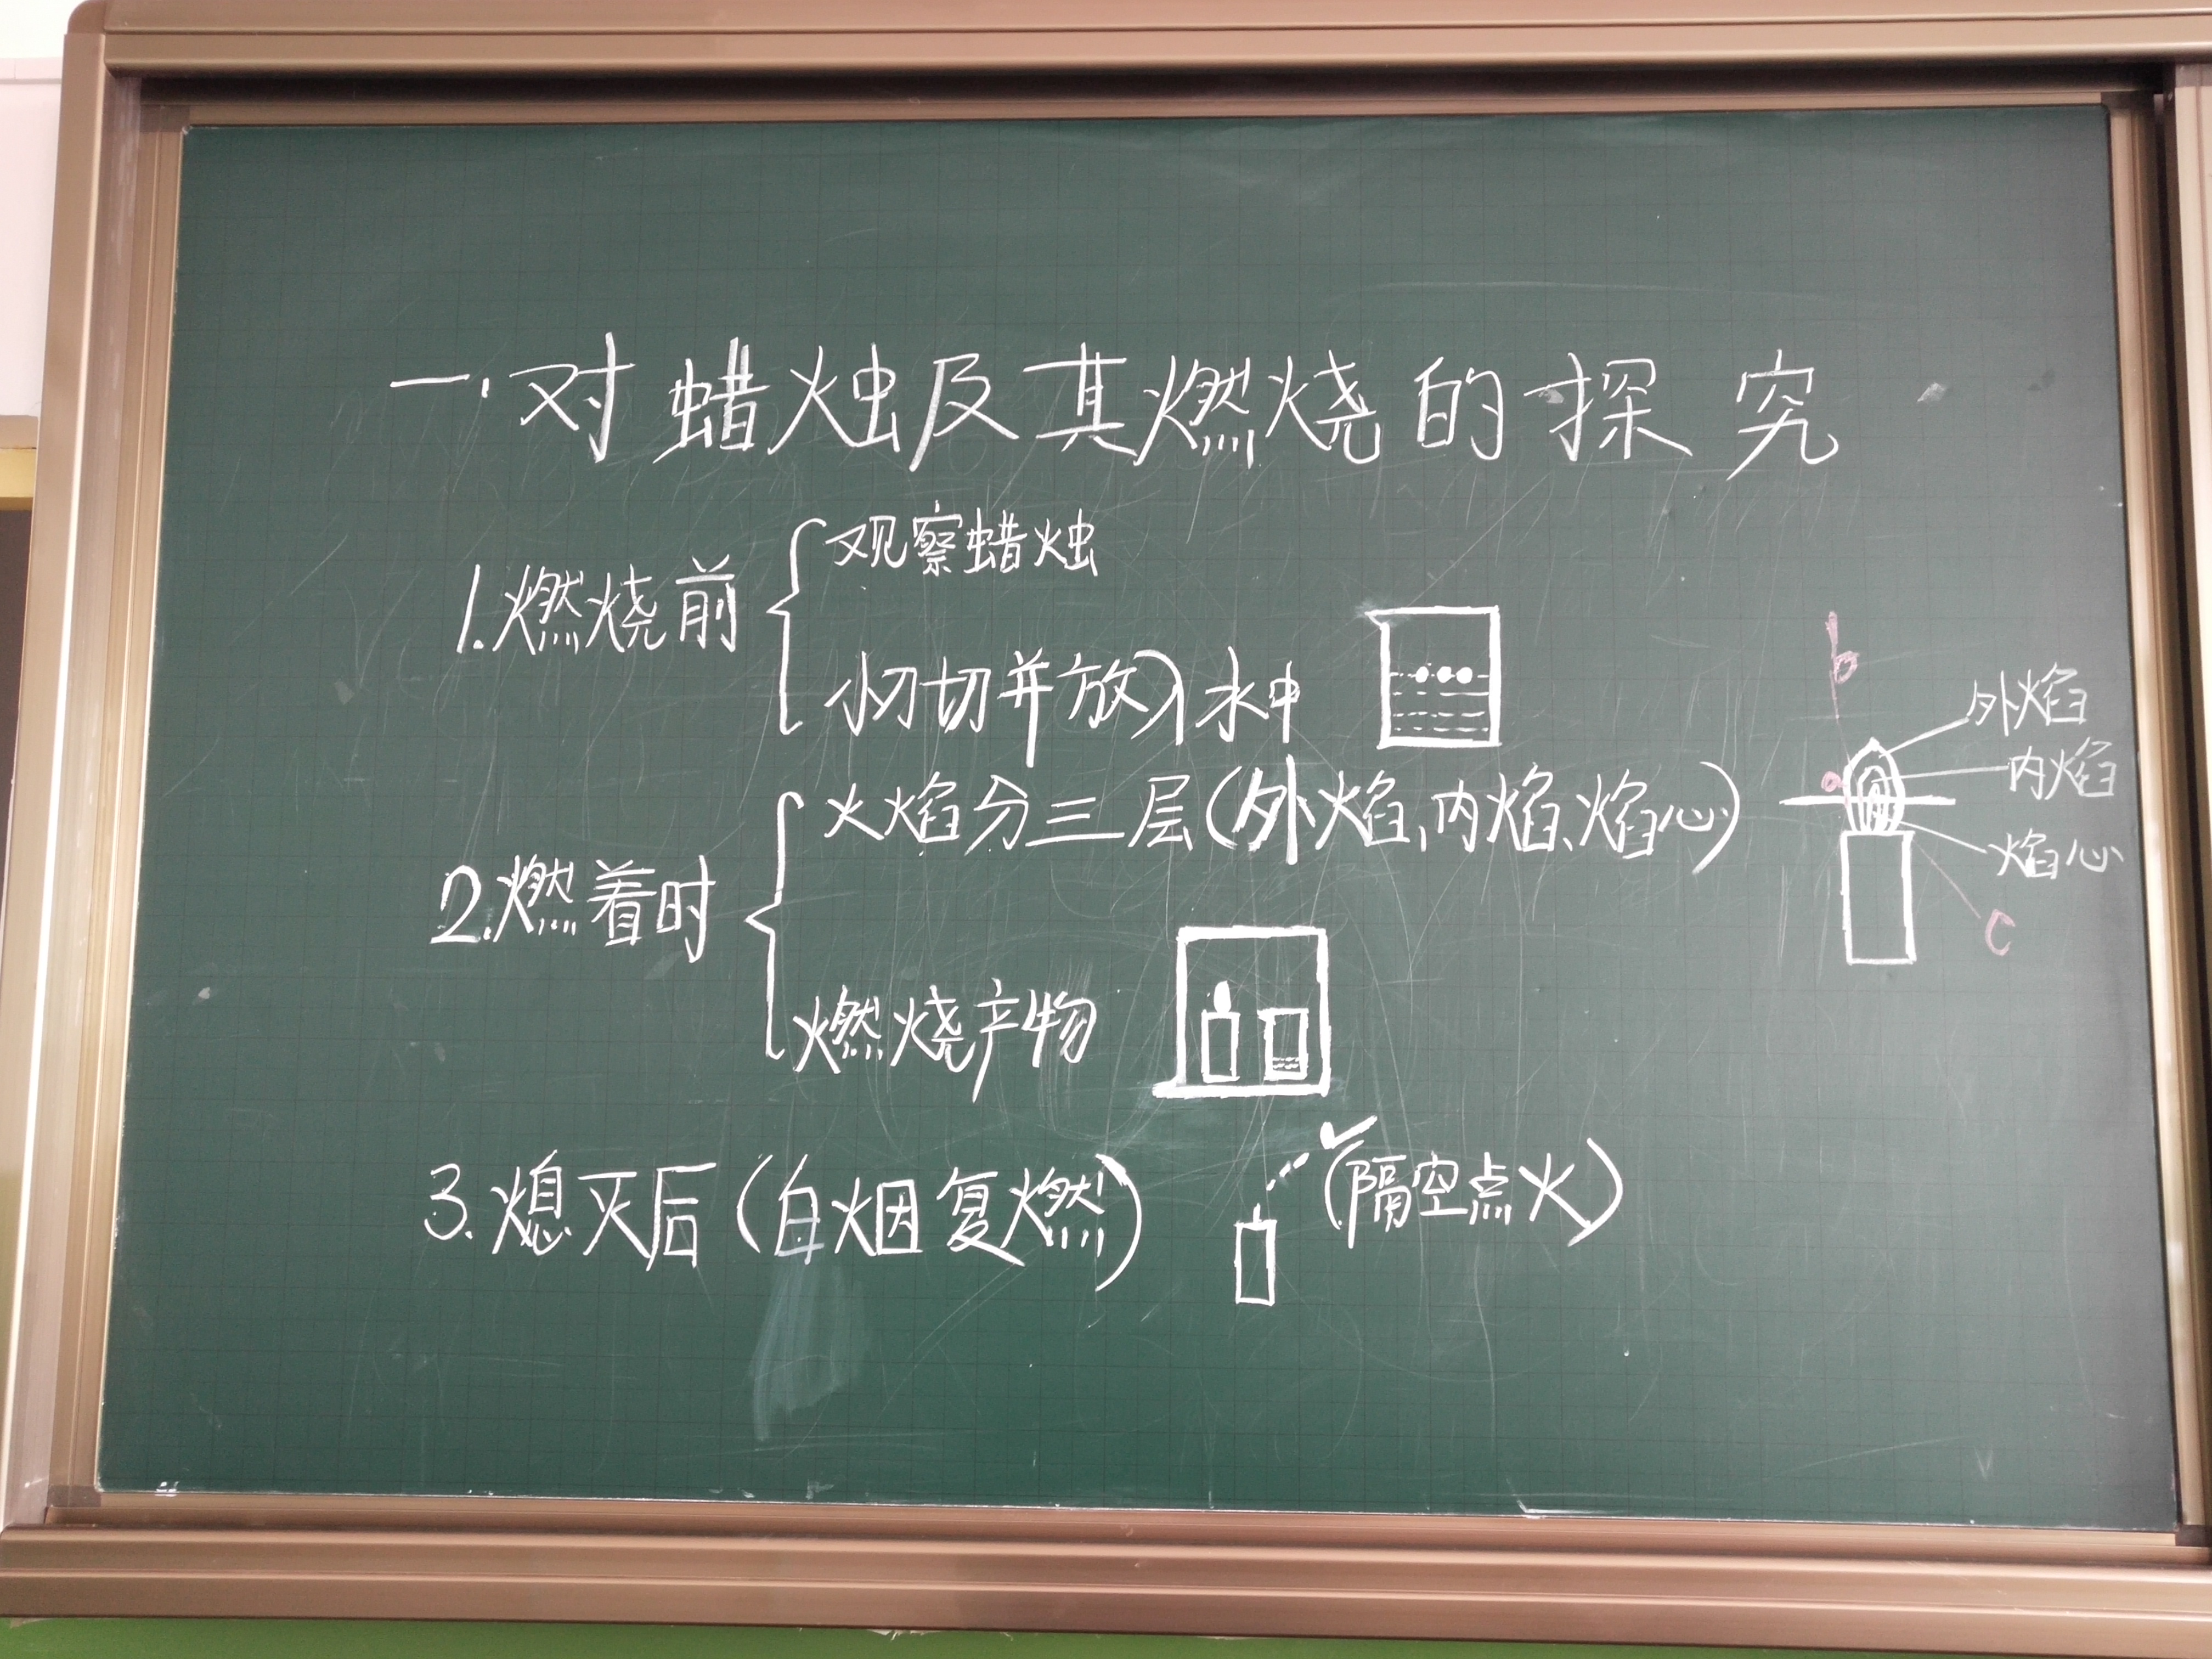 一.对蜡烛及其燃烧的探究
1.燃烧前
观察蜡烛
切并放入水中
2.燃着时
火焰分三层(外焰、内焰、焰心)
燃烧产物
3.熄灭后(白烟复燃)
(隔空点火)
b
外焰
a
内焰
焰心
c